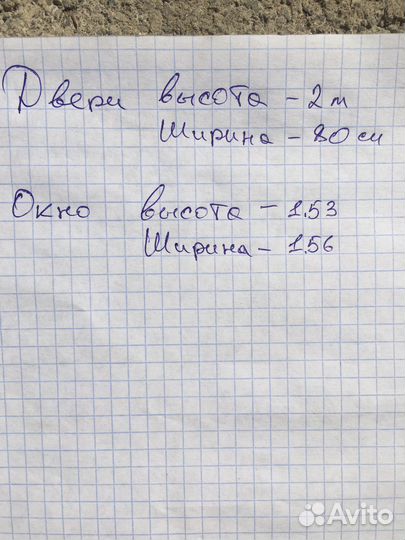 Двери высота - 2 м
Ширина - 80 см
Окно высота - 1.53
Ширина - 1.56
Avito